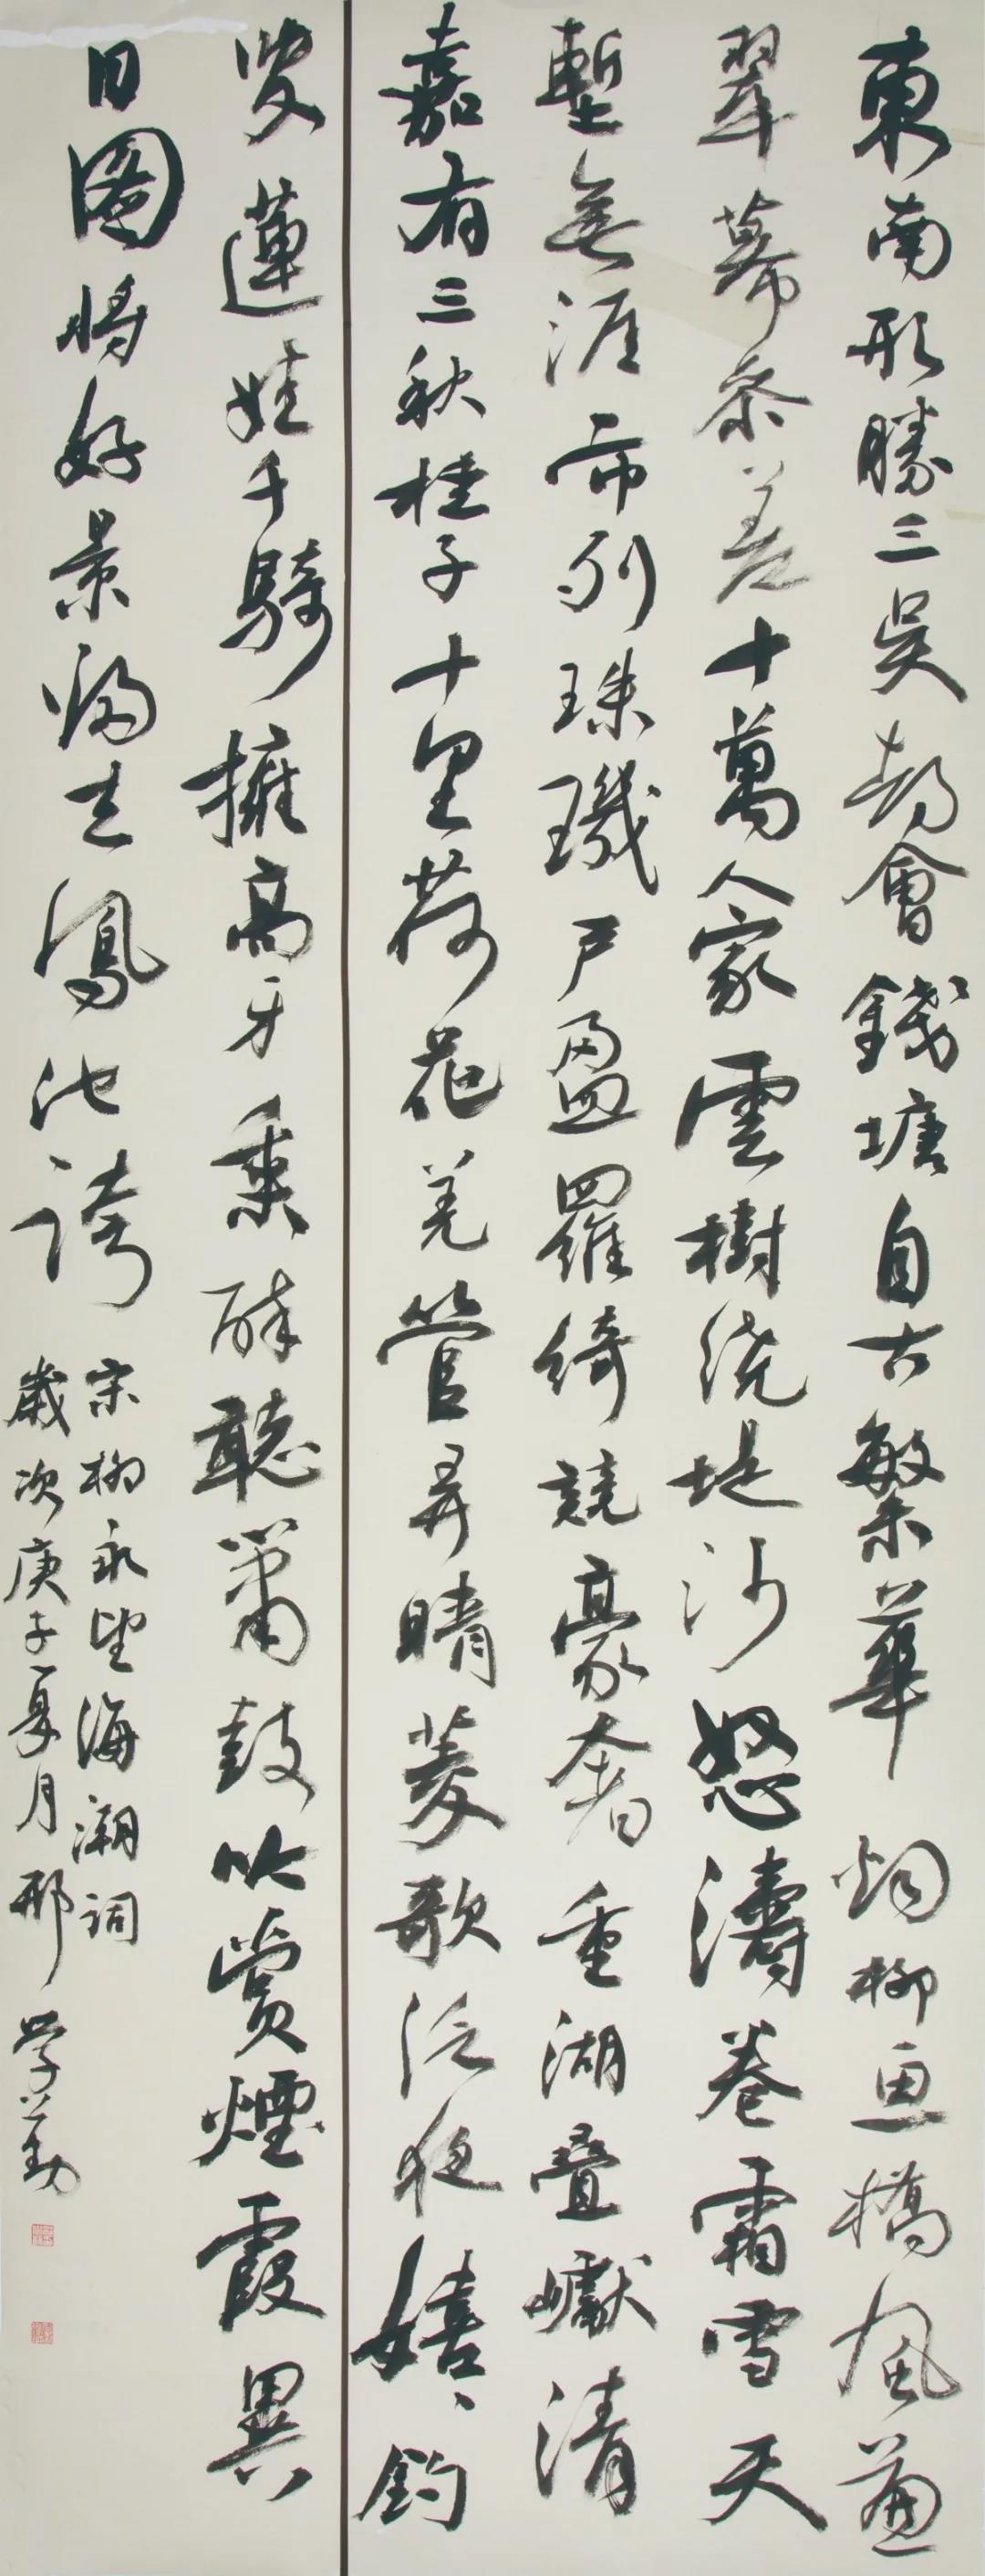 東南形勝三吴都會錢塘自古繁華烟柳画橋風簾
翠幕参差十萬人家雲樹绕堤沙怒濤卷霜雪天
塹無涯市列珠璣戸盈羅綺競豪奢重湖叠巘清
嘉有三秋桂子十里荷花羌管弄晴菱歌泛夜嬉嬉釣
叟蓮娃千騎擁高牙乘醉聽箫鼓吟賞煙霞異
日图将好景歸去鳳池誇
宋柳永望海潮詞
歲次庚子夏月邢学勤